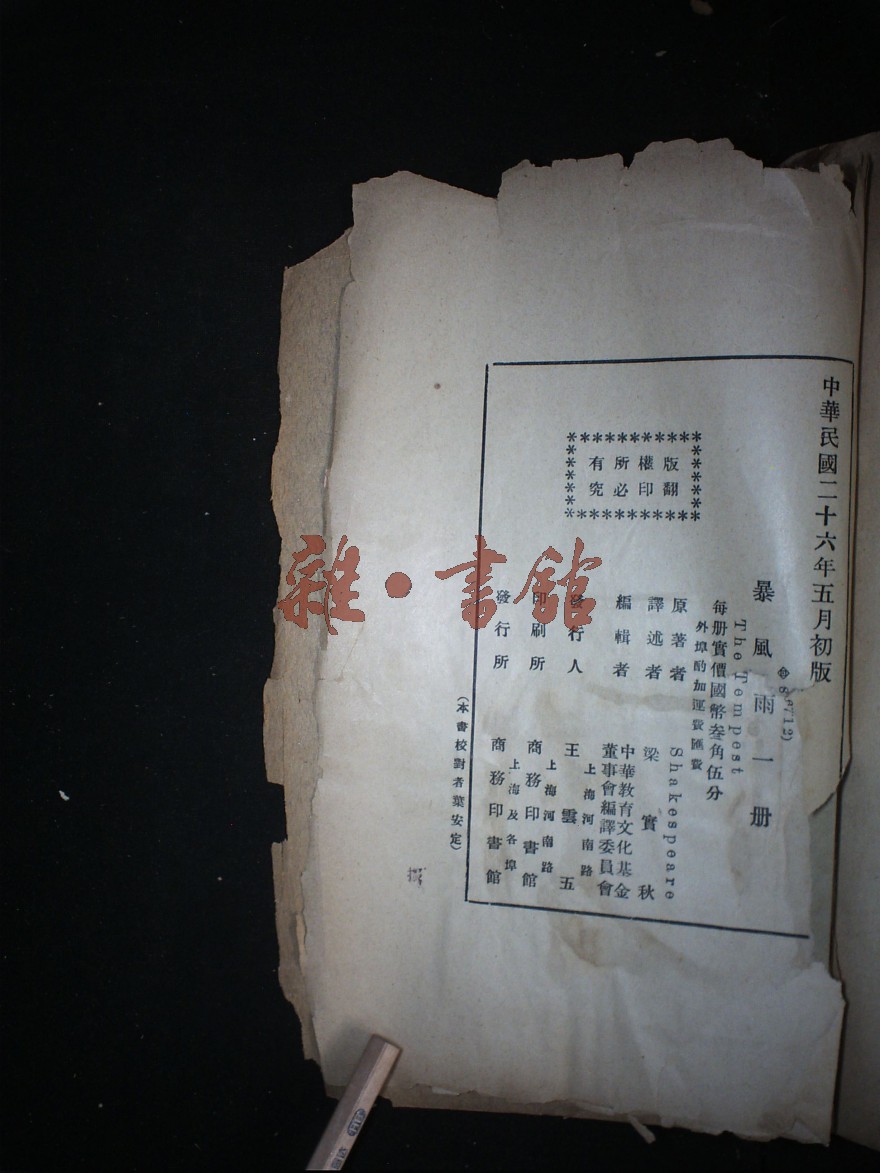 中華民國二十六年五月初版
暴風雨一册
The Tempest
每册實價國幣叁角伍分
外埠酌加運費匯費
原著者 Shakespeare
譯述者 梁實秋
編輯者 中華教育文化基金董事會編譯委員會
發行人 王雲五
上海河南路
印刷所 商務印書館
上海河南路
發行所 商務印書館
上海及各埠
(本書校對者葉安定)
版權所有
翻印必究
雜·書館